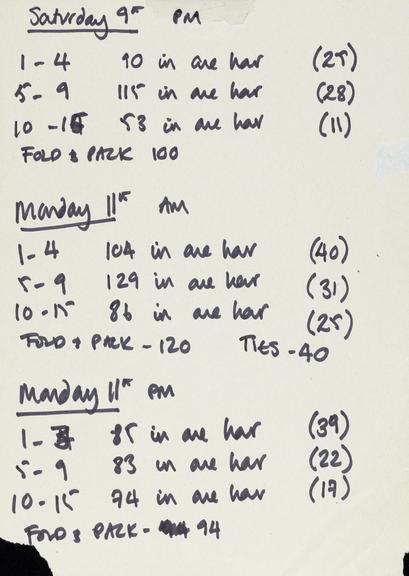 Saturday 9th PM
1 - 4 90 in one hour (25)
5 - 9 115 in one hour (28)
10 - 15 53 in one hour (11)
FOLD & PACK 100
Monday 11th AM
1 - 4 104 in one hour (40)
5 - 9 129 in one hour (31)
10 - 15 86 in one hour (25)
FOLD & PACK - 120 TIES - 40
Monday 11th PM
1 - 85 in one hour (39)
5 - 9 83 in one hour (22)
10 - 15 74 in one hour (17)
FOLD & PACK - 94